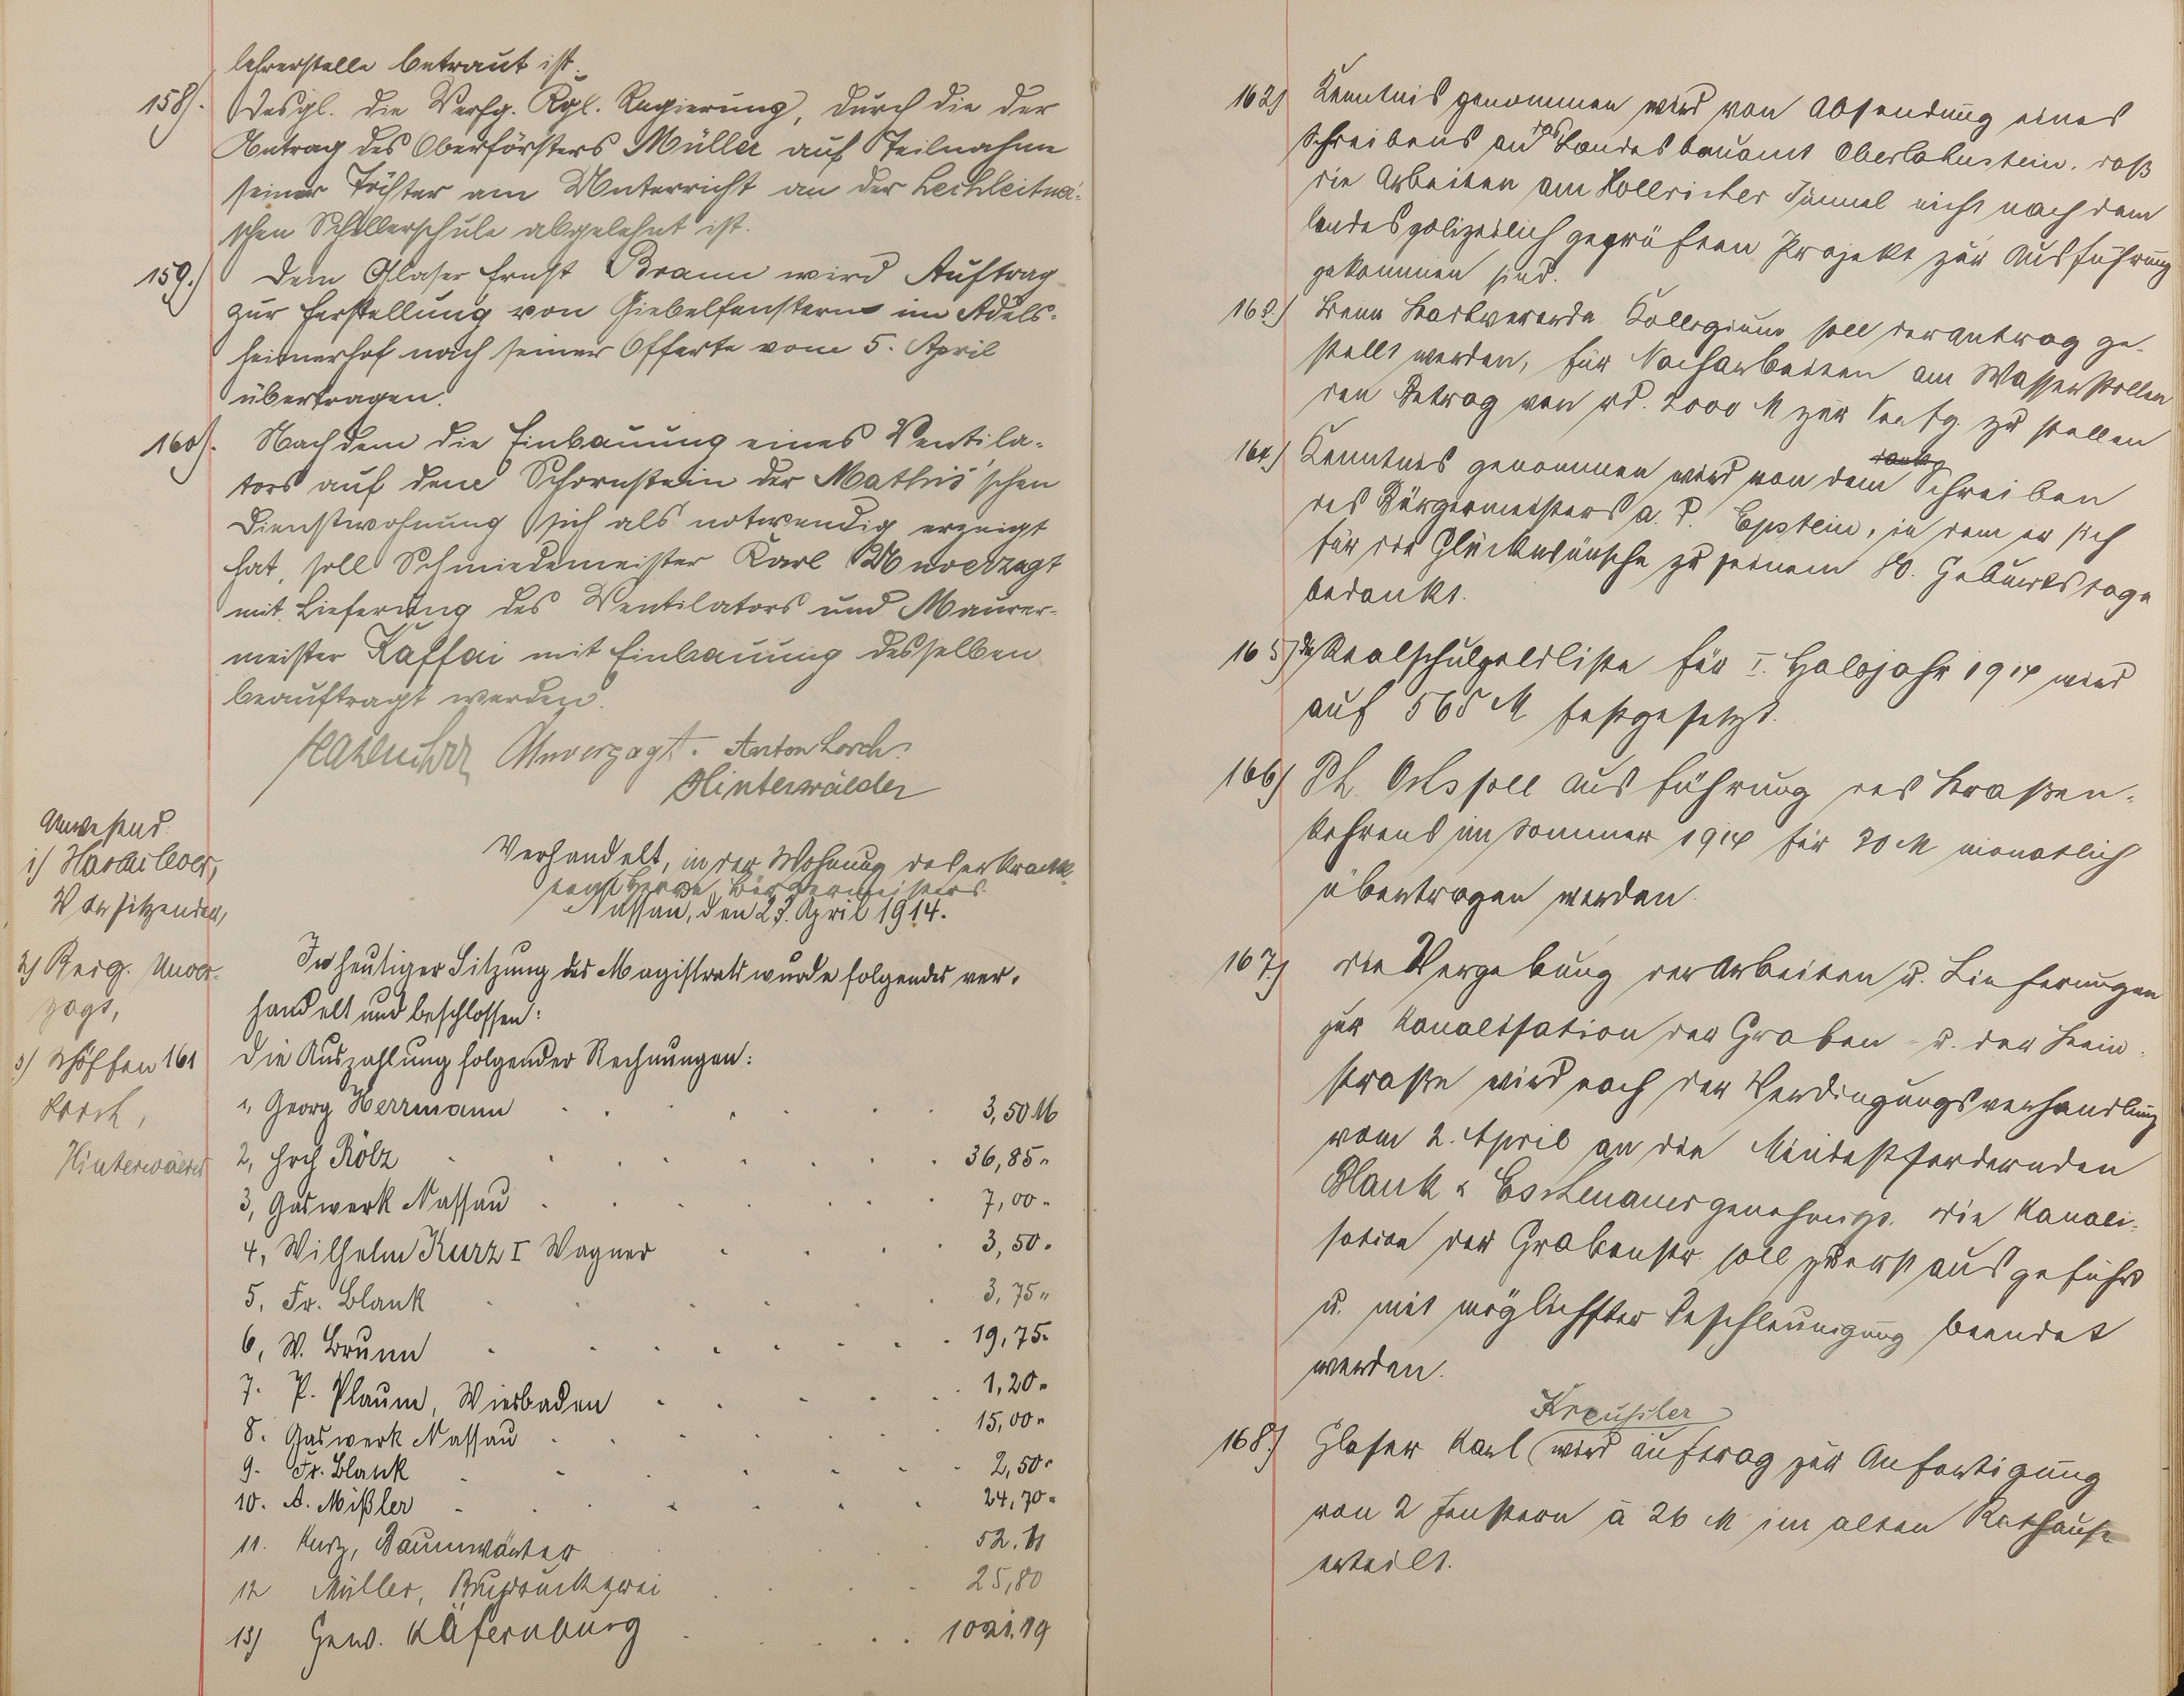 lehrerstelle betraut ist.
158). Desgl. die Verfg. Kgl. Regierung, durch die der
Antrag des Oberförsters Müller auf Teilnahme
seiner Töchter am Unterricht an der
schen Schillerschule abgelehnt ist.
159.) Dem Glaser Ernst Bramm wird Auftrag
zur Herstellung von Giebelfenstern im Adels-
heimerhof nach seiner Offerte vom 5. April
übertragen.
160). Nachdem die Einbauung eines Ventila-
tors auf dem Schornstein der Mathis'schen
Dienstwohnung sich als notwendig erzeigt
hat, soll Schmiedemeister Karl Unverzagt
mit Lieferung des Ventilators und Maurer-
meister Kaffai mit Einbauung desselben
beauftragt werden.
Hasenclever Unverzagt. Anton Lorch.
Hinterwälder
Anwesend:
1) Hasenclever,
Vorsitzender,
2) Beig. Unver-
zagt,
3) Schöffen
Lorch,
Hinterwälder
Verhandelt, in der Wohnung des erkrank-
ten Herrn Bürgermeisters
Nassau, den 23. April 1914.
In heutiger Sitzung des Magistrats wurde folgendes ver-
handelt und beschlossen:
161 Die Auszahlung folgender Rechnungen:
1, Georg Herrmann 3,50 M
2, Hrch Kölz 36,85 "
3, Gaswerk Nassau 7,00 "
4, Wilhelm Kurz I Wagner 3,50 "
5, Fr. Blank 3,75 "
6, W. Brunn 19,75 "
7. P. Plaum, Wiesbaden 1,20 "
8. Gaswerk Nassau 15,00 "
9. Fr. Blank 2,50 "
10. A. Mißler 24,70 "
11. Kurz, Baumwärter 52.
12 Müller, Buchdruckerei 25,80
13) Gew. Käfernburg 1021.19
162) Kenntnis genommen wird von Absendung eines
Schreibens an das Landesbauamt Oberlahnstein, daß
die Arbeiten am Hollricher Tunnel nicht nach dem
landespolizeilich geprüften Projekt zur Ausführung
gekommen sind.
163.) Beim Stadtverordn. Kollegium soll der Antrag ge-
stellt werden, für Nacharbeiten am Wasserstollen
den Betrag von rd. 2000 M zur Verfg. zu stellen
164.) Kenntnis genommen wird von dem Schreiben
des Bürgermeisters a. D. Epstein, in dem er sich
für die Glückwünsche zu seinem 80. Geburtstage
bedankt.
165) die Realschulgeldliste für I. Halbjahr 1914 wird
auf 565 M festgesetzt.
166) Ph. Ochs soll Ausführung des Straßen-
kehrens im Sommer 1914 für 30 M monatlich
übertragen werden.
167.) Die Vergebung der Arbeiten u. Lieferungen
zur Kanalisation der Graben- u. der Stein-
straße wird nach der Verdingungsverhandlung
vom 2. April an die Mindestfordernden
Blank & Eschenauer genehmigt. Die Kanali-
sation der Grabenstr. soll zuerst ausgeführt
u. mit möglichster Beschleunigung beendet
werden.
168.) Glaser Karl Kreußler wird Auftrag zur Anfertigung
von 2 Fenstern à 26 M im alten Rathause
erteilt.